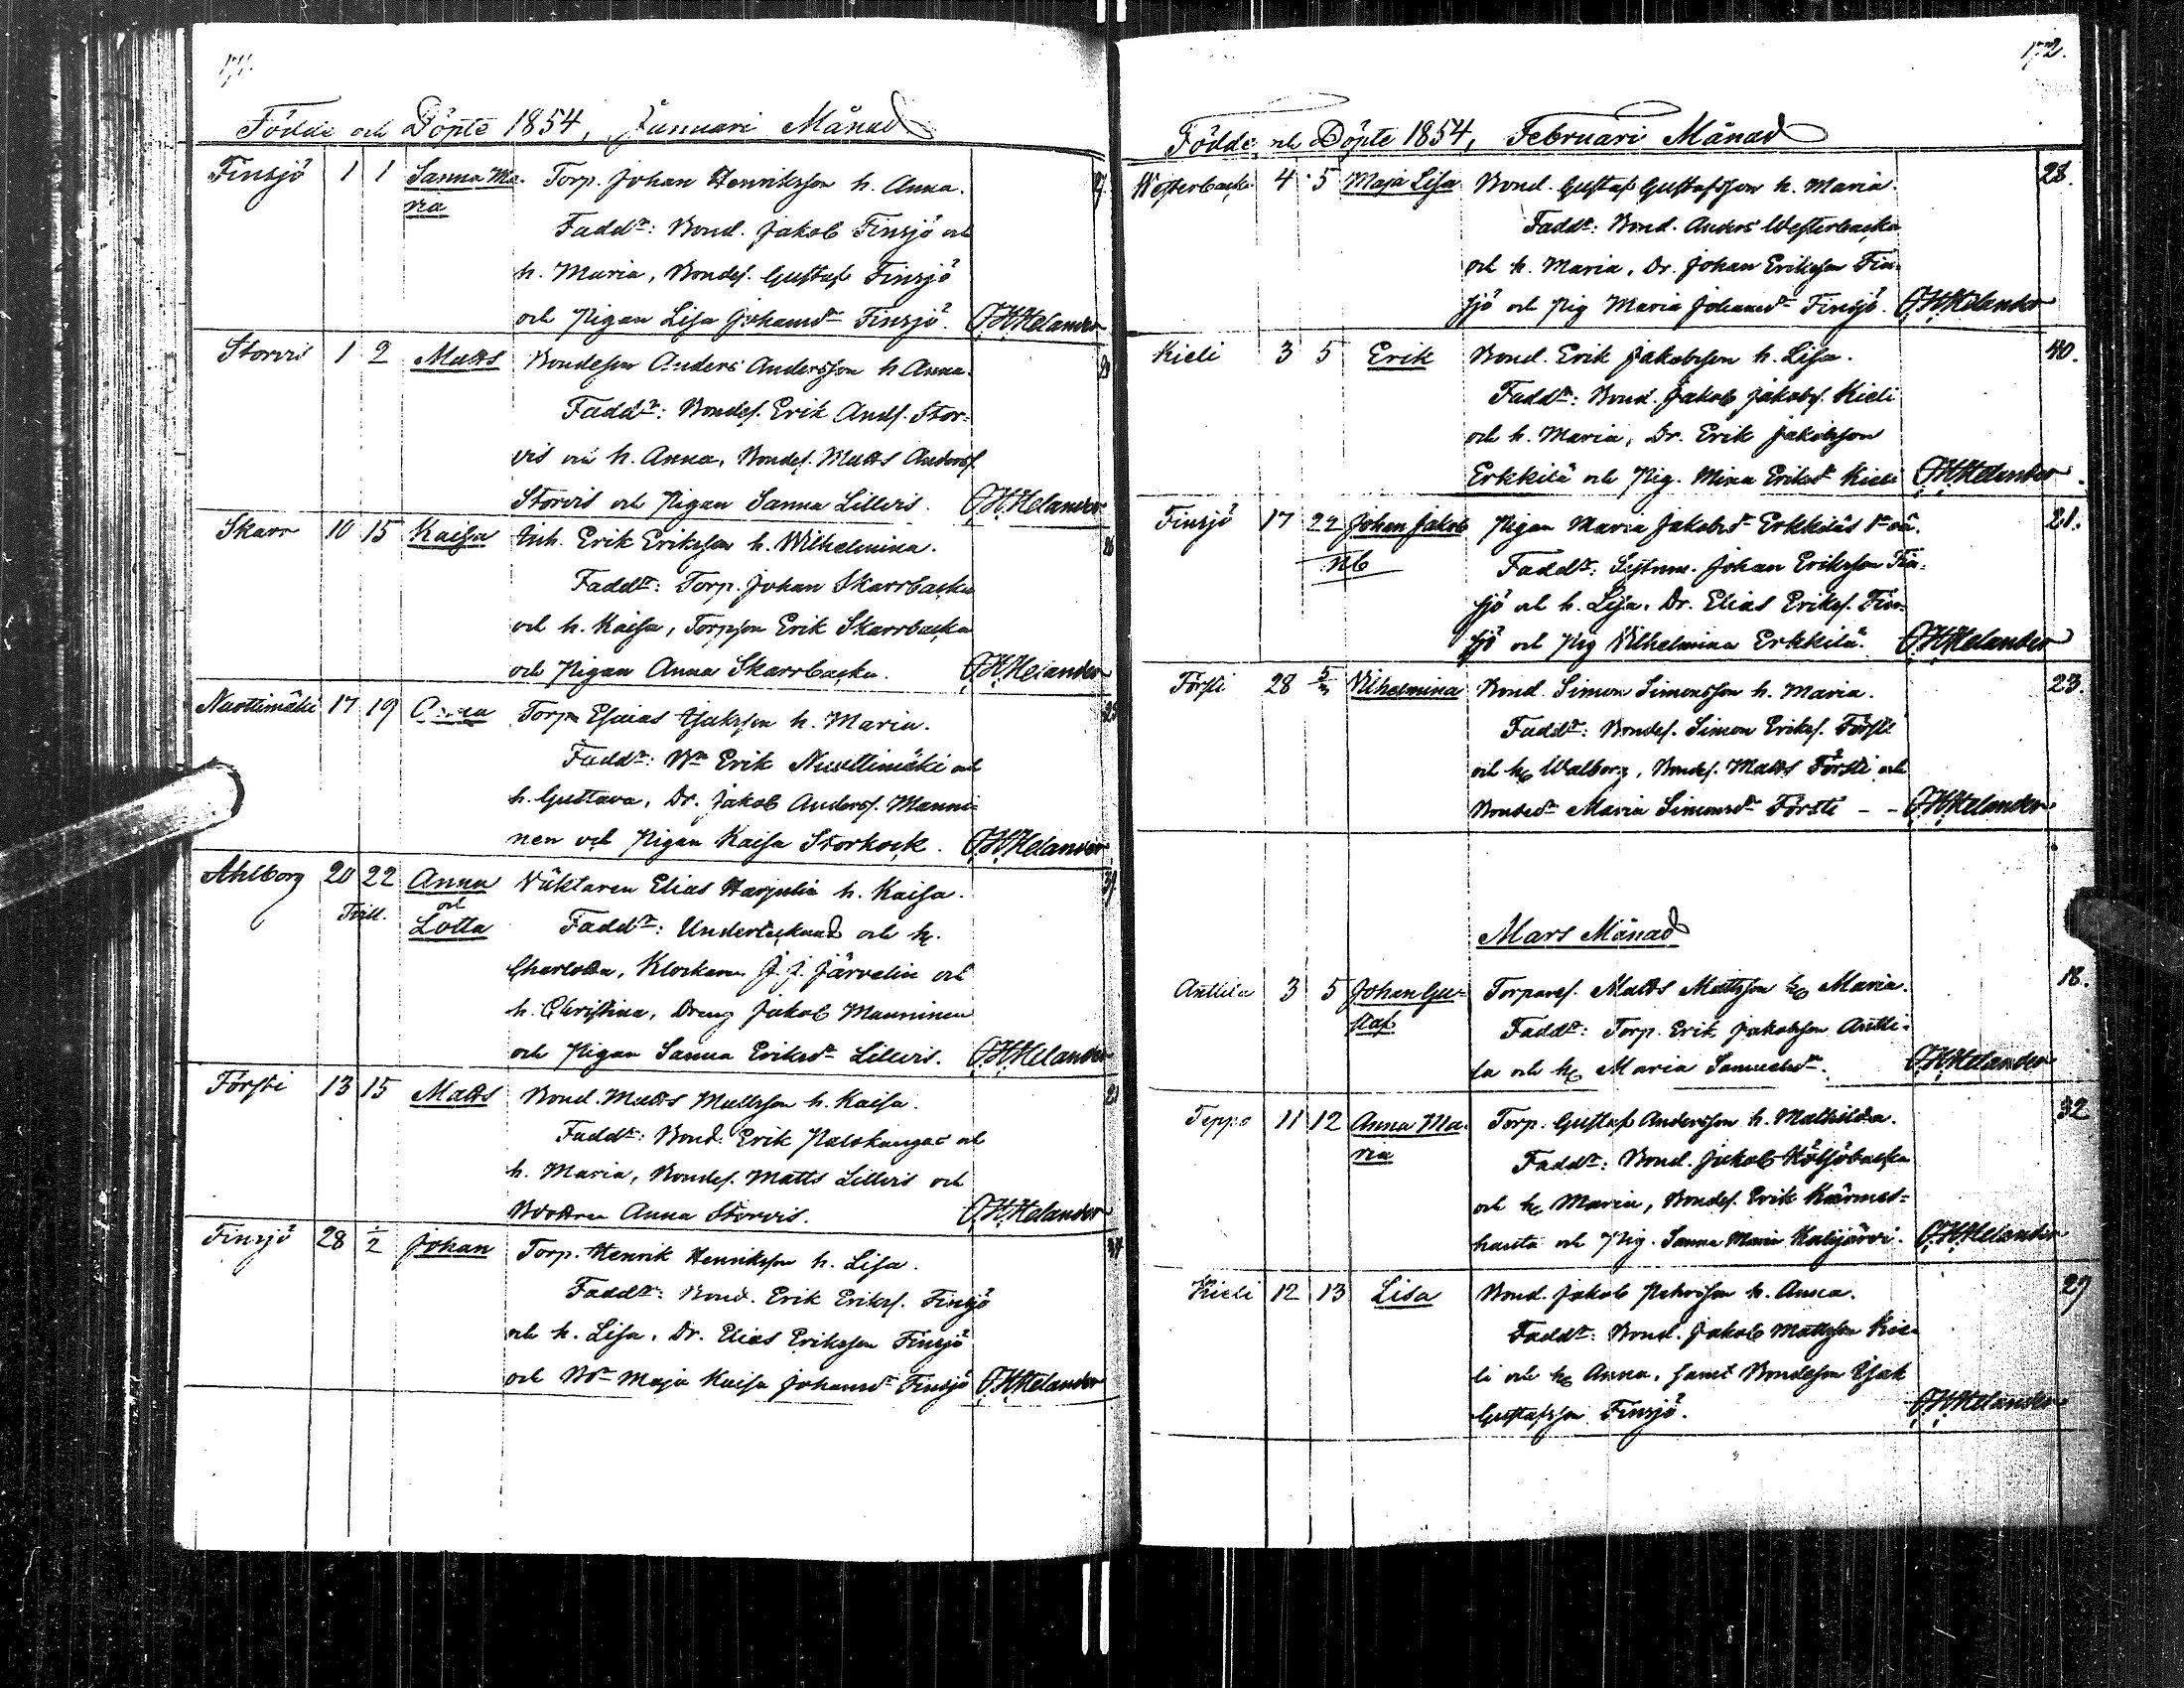 171.
Födde och Döpte 1854, Januari Månad
Finsjö 1 1 Sanna Ma- Torp. Johan Henriksson h. Anna.
ria Fadd:r: Bond. Jakob Finsjö och
h. Maria, Bondes. Gustaf Finsjö
och Pigan Lisa Johansd:r Finsjö. O.H.Helander
Storvis 1 2 Matts Bondeson Anders Andersson h. Anna.
Fadd:r: Bondes. Erik Ands. Stor-
vis och h. Anna, Bondes. Matts Anderss.
Storvis och Pigan Sanna Lillvis. O.H.Helander
Skarr 10 15 Kaisa Inh. Erik Eriksson h. Wilhelmina.
Fadd:r: Torp. Johan Skarrbacka
och h. Kaisa, Torpson Erik Skarrbacka
och Pigan Anna Skarrbacka. O.H.Helander
Nuottimäki 17 19 Torp Esaias Isaksson h. Maria.
Fadd:r: Bn Erik Nuottimäki och
h. Gustava, Dr. Jakob Anderss. Manni-
nen och Pigan Kaisa Storkock. O.H.Helander
Ahlborg 20 22 Anna Väktaren Elias Harjulin h. Kaisa.
Tvill. och
Lotta Fadd:r: Undertecknad och h.
Charlotta, Klockaren J. J. Järvelin och
h. Christina, Dreng Jakob Manninen
och Pigan Sanna Eriksd:r Lillvis. O.H.Helander
Försti 13 15 Matts Bond. Matts Mattsson h. Kaisa.
Fadd:r: Bond. Erik Palokangas och
h. Maria, Bondes. Matts Lillvis och
Anna Storvis. O.H.Helander
Finsjö 28 1/2 Johan Torp. Henrik Henriksson h. Lisa.
Fadd:r: Bond. Erik Erikss. Finsjö
och h. Lisa, Dr. Elias Eriksson Finsjö
och Bd:r Maja Kaisa Johansd:r Finsjö O.H.Helander
172.
Födde och Döpte 1854, Februari Månad
Westerbacka 4 5 Maja Lisa Bond. Gustaf Gustafsson h. Maria. 28.
Fadd:r: Bond. Anders Westerbacka
och h. Maria, Dr. Johan Eriksson Fin-
sjö och Pig Maria Johansd:r Finsjö. O.H.Helander
Kieli 3 5 Erik Bond. Erik Jakobsson h. Lisa. 40.
Fadd:r: Bond. Jakob Jakobs. Kieli
och h. Maria, Dr. Erik Jakobsson
Erkkilä och Pig. Mina Eriksd:r Kieli O.H.Helander
Finsjö 17 22 Johan Jakob Pigan Maria Jakobsd:r Erkkiläs 21.
NB Fadd:r: Johan Eriksson Fin-
sjö och h. Lisa, Dr. Elias Erikss. Fin-
sjö och Pig Vilhelmina Erkkilä. O.H.Helander
Försti 28 5/3 Vilhelmina Bond. Simon Simonsson h. Maria. 23.
Fadd:r: Bondes. Simon Erikss. Försti
och h. Walborg, Bondes. Matts Försti och
Bonded:r Maria Simonsd:r Försti - - O.H.Helander
Mars Månad
Anttila 3 5 Johan Gu- Torpares. Matts Mattsson h. Maria. 18.
staf Fadd:r: Torp. Erik Jakobsson Antti-
la och h. Maria Samuelsd:r. O.H.Helander
Teppo 11 12 Anna Ma- Torp. Gustaf Andersson h. Mathilda. 32
ria Fadd:r: Bond. Jakob Höljöbacka
och h. Maria, Bondes. Erik Käärmes-
hauta och Pig. Sanna Maria Kalijärvi. O.H.Helander
Kieli 12 13 Lisa Bond. Jakob Pehrsson h. Anna. 27
Fadd:r: Bond. Jakob Mattsson Kie-
li och h. Anna, samt Bondeson Isak
Gustafsson Finsjö. O.H.Helander